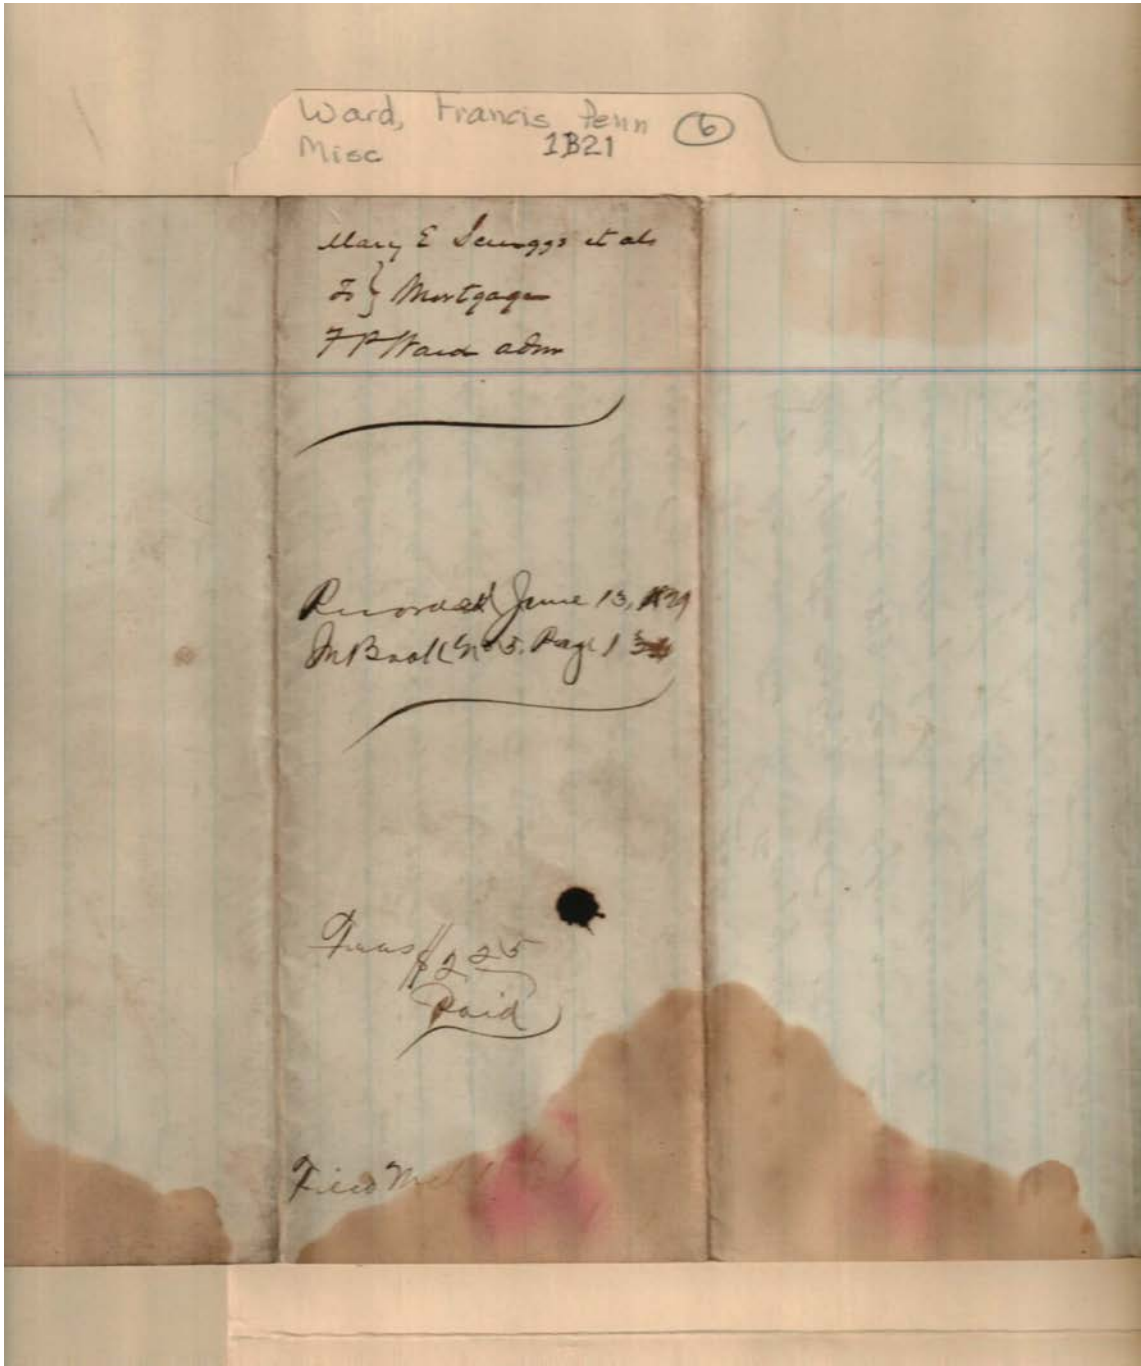 Ward, Francis Penn 6
Misc 1B21
Mary E Scruggs et als
To } Mortgage
F P Ward adm
Recorded June 13, 1879
In Book No 5. Page 1
Fees $2.25
Paid
Filed